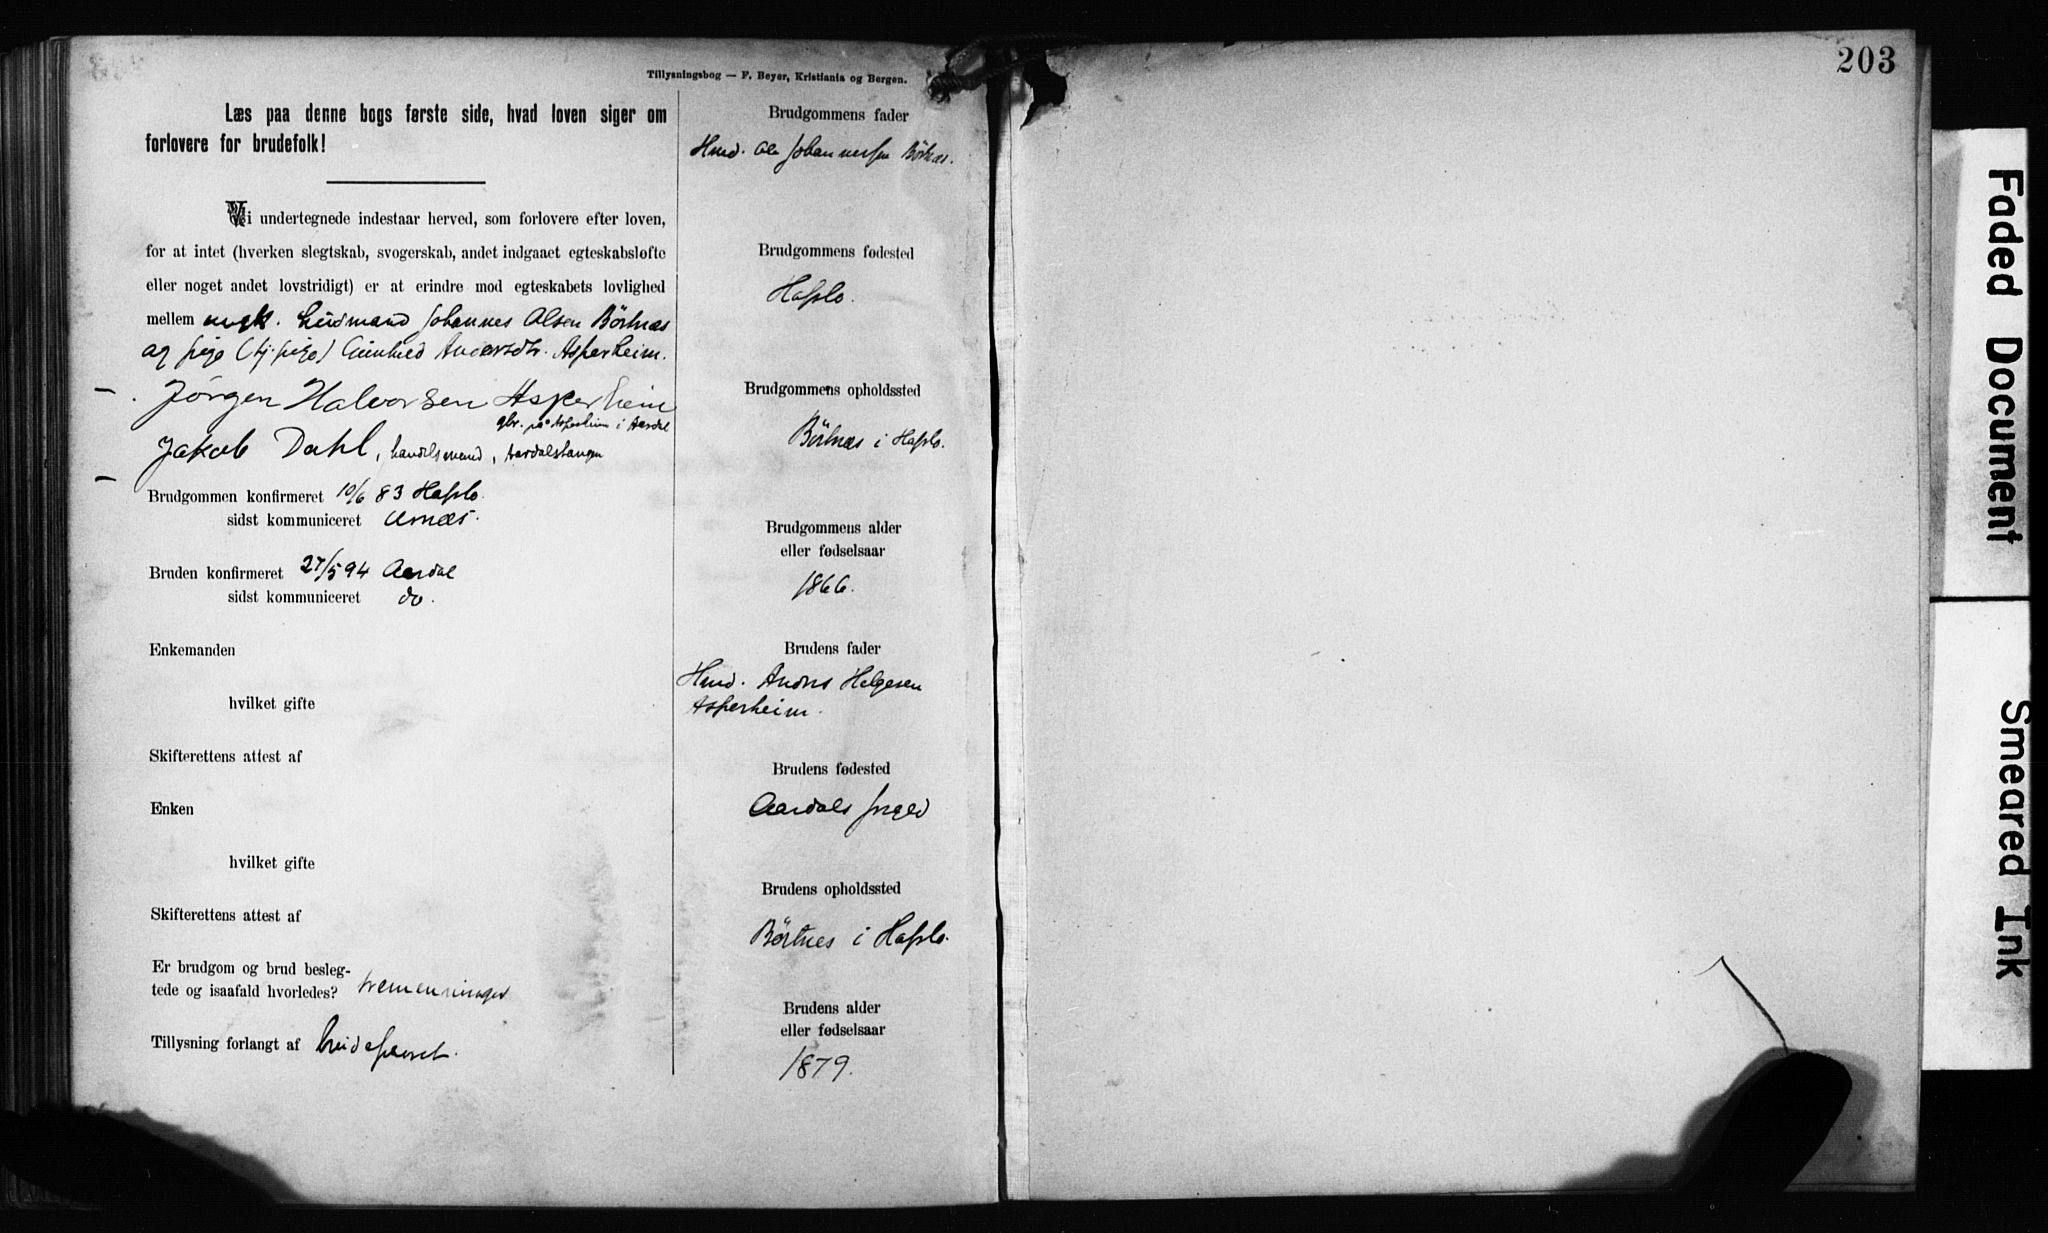 203
Tillysningsbog — F. Beyer, Kristiania og Bergen.
Læs paa denne bogs første side, hvad loven siger om
forlovere for brudefolk!
Vi undertegnede indestaar herved, som forlovere efter loven,
for at intet (hverken slegtskab, svogerskab, andet indgaaet egteskabsløfte
eller noget andet lovstridigt) er at erindre mod egteskabets lovlighed
mellem ungk. husmand Johannes Olsen Börtnæs
og pige (tj. pige) Gunhild Andersdtr. Asperheim.
Jörgen Halvorsen Asperheim
gbr. på Asperheim i Aardal
Jakob Dahl, handelsmand, Aardalstangen
Brudgommen konfirmeret 10/6 83 Hafslo.
sidst kommuniceret Urnæs.
Bruden konfirmeret 27/5 94 Aardal
sidst kommuniceret do.
Enkemanden
hvilket gifte
Skifterettens attest af
Enken
hvilket gifte
Skifterettens attest af
Er brudgom og brud besleg-
tede og isaafald hvorledes? tremenninger
Tillysning forlangt af brudeparret.
Brudgommens fader
Hmd. Ole Johannessen Börtnæs.
Brudgommens fødested
Hafslo.
Brudgommens opholdssted
Börtnæs i Hafslo.
Brudgommens alder
eller fødselsaar
1866.
Brudens fader
Hmd. Anders Helgesen
Asperheim.
Brudens fødested
Aardals sogn
Brudens opholdssted
Börtnes i Hafslo.
Brudens alder
eller fødselsaar
1879.
Faded Document
Smeared Ink